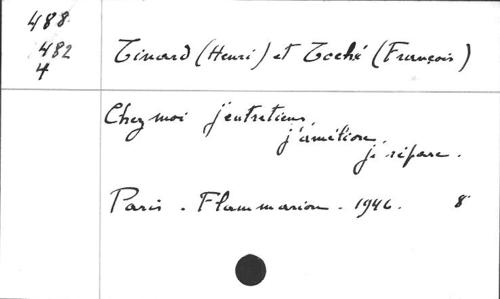 488
482
4
Tinard (Henri) et Toché (François)
Chez moi j'entretiens,
j'améliore,
je répare.
Paris. Flammarion. 1946. 8°